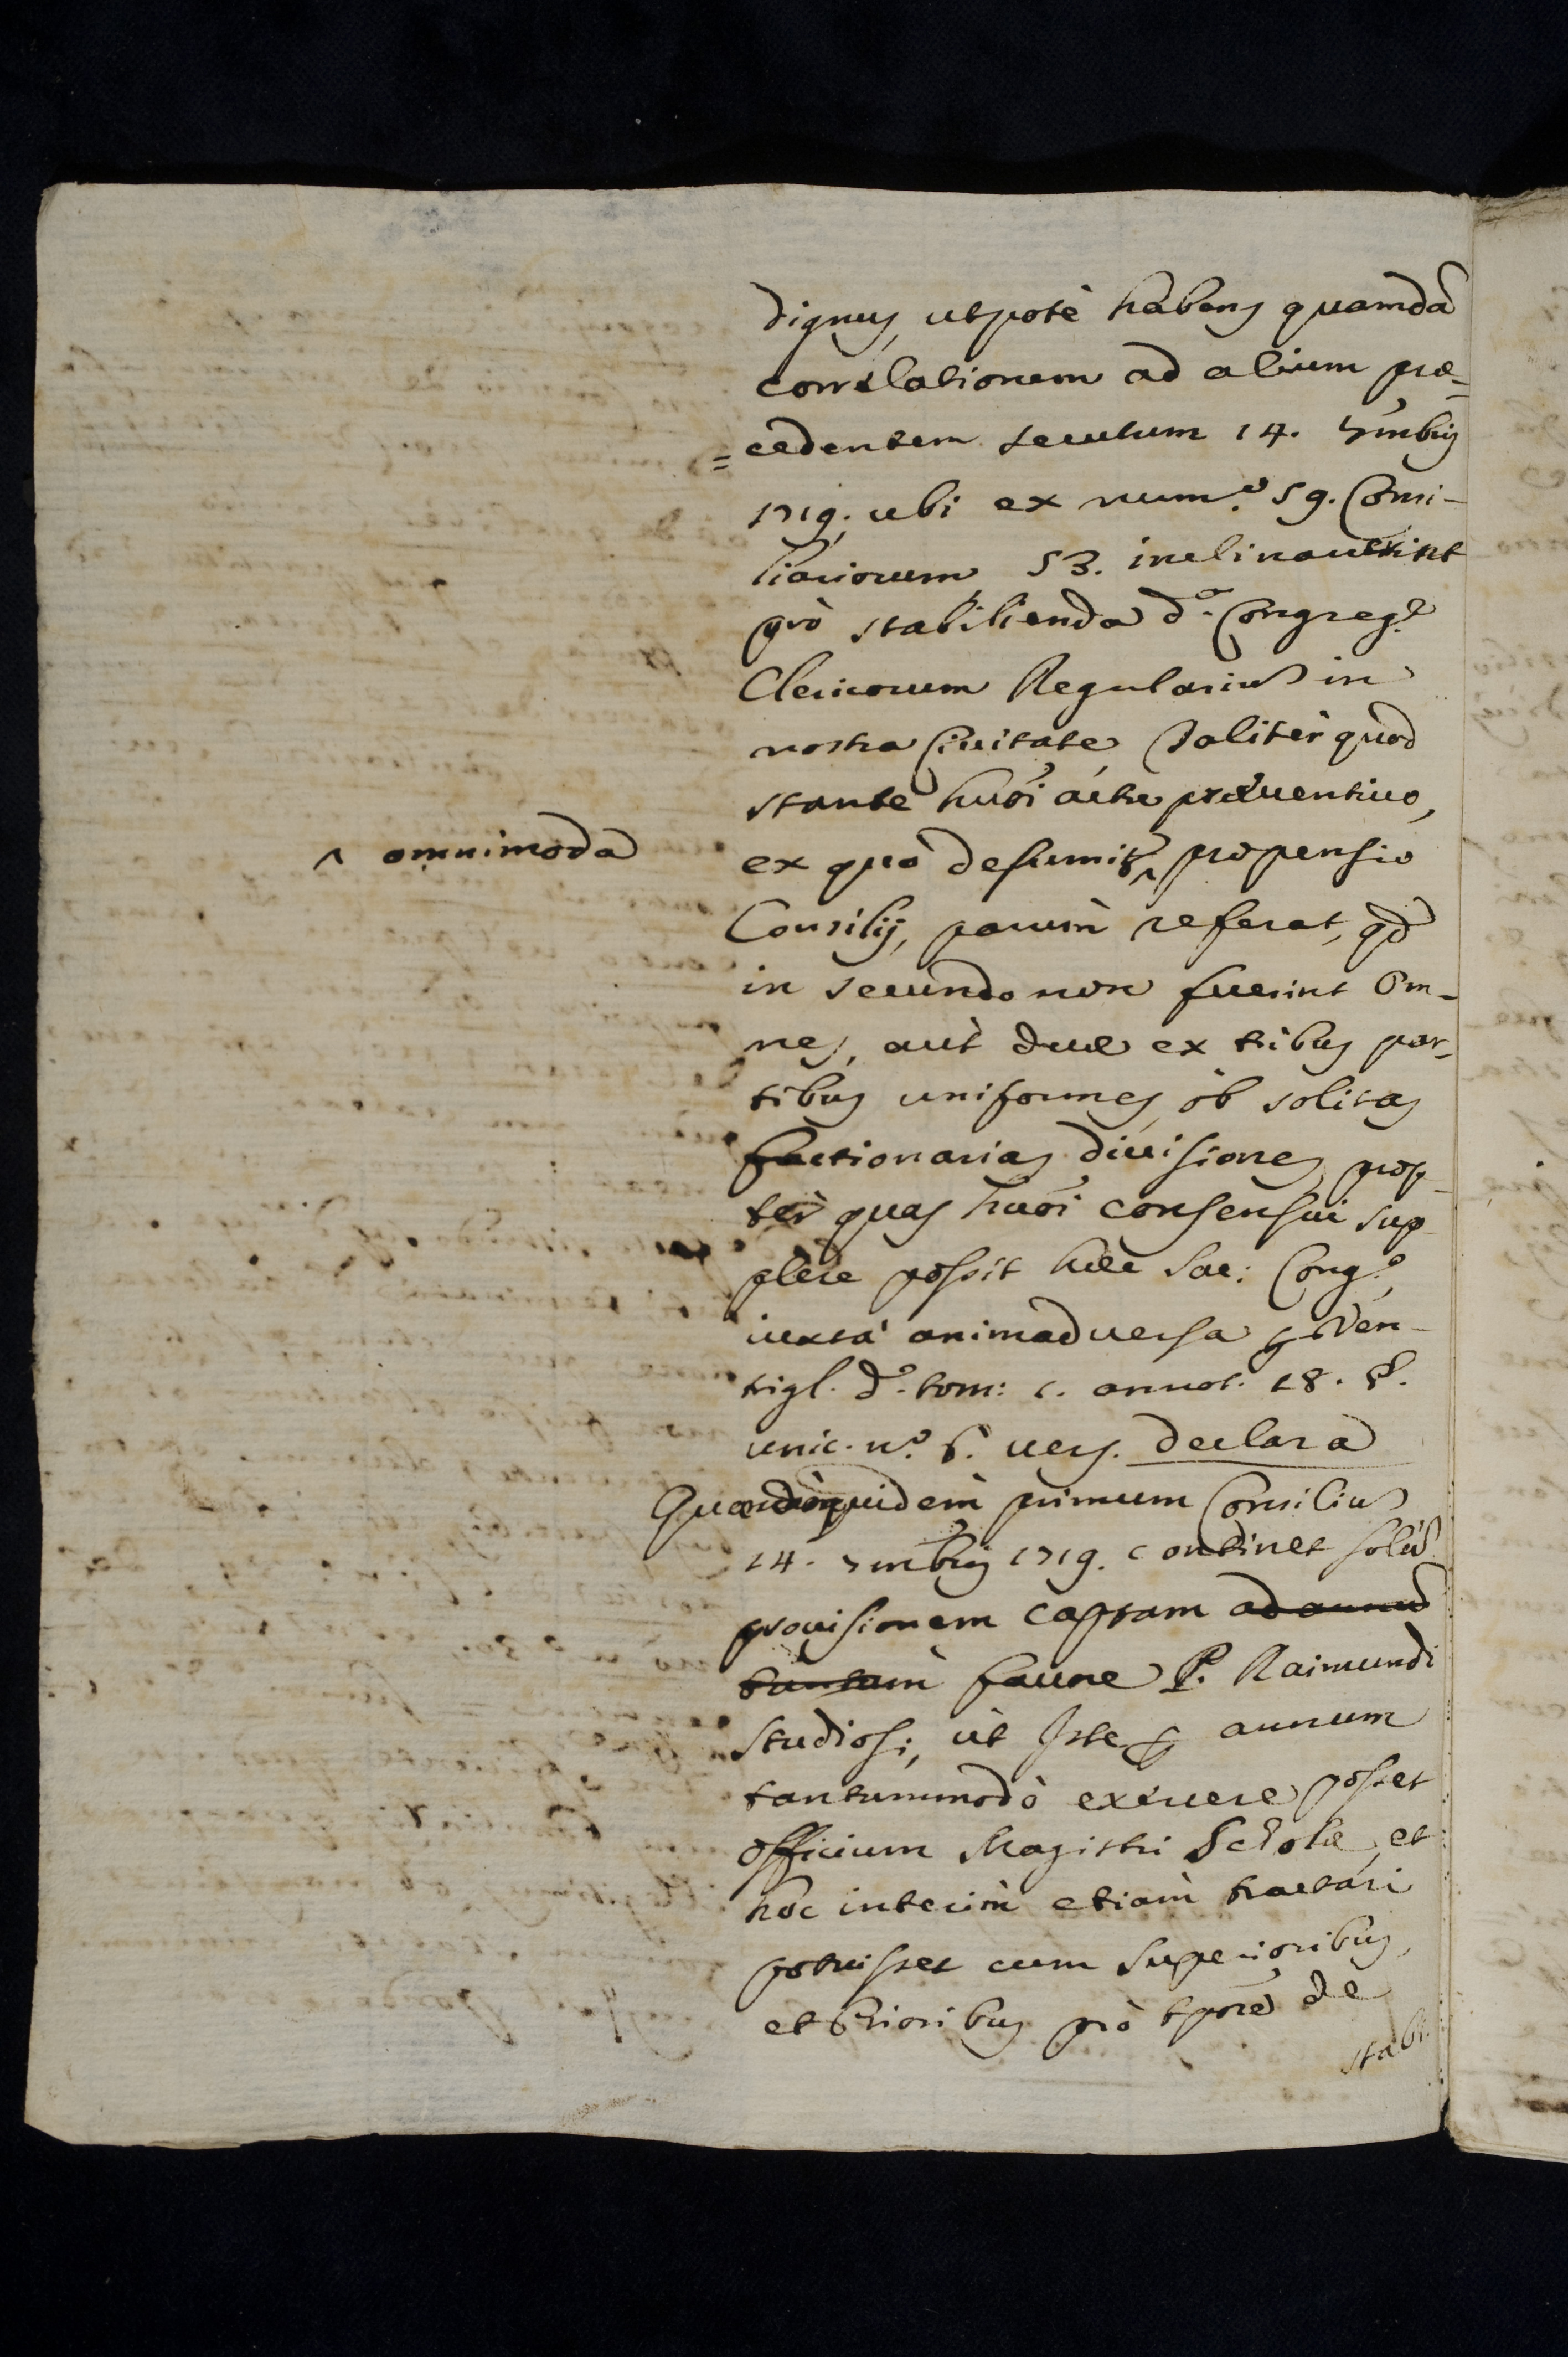 dignus, utpotè habens quamdã
correlationem ad alium præ-
=cedentem secutum 14. 7mbris
1719. ubi ex num.º 59. Consi-
liariorum 53. inclinauerint
prò stabilienda d.ª Congreg.e
Clericorum Regularium in
nostra Ciuitate, Taliter quod
stante huõi actu præuentiuo,
^ omnimoda
ex quo desumitr^ propensio
Consilij, parùm referat, qd
in secundo non fuerint Om-
nes, aut duæ ex tribus par-
tibus uniformes ob solitas
factionarias diuisiones, prop-
tèr quas huõi consensui sup-
plere possit hæc Sac: Cong.e
iuxtà animaduersa per Ven-
trigl. d.º tom: 1. annot. 18. §.
unic. n.º 6. vers. declara
Quandoquidem primum Consilium
14. 7mbris 1719. continet solũ
prouisionem captam ad annum
tantum fauore P. Raimundi
Studiosi, ut Iste per annum
tantummodò exercere posset
officium Magistri Scholæ, et
hoc interim etiam tractari
potuisset cum Superioribus,
et Prioribus prò tpore de
stabi-